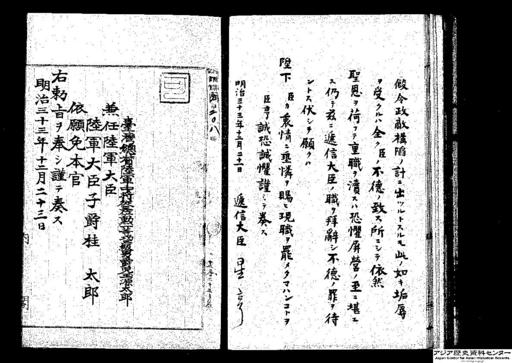 仮令政敵構陥ノ計ニ出ツルトスルモ此ノ如キ垢辱
ヲ受クルハ全ク臣ノ不徳ノ致ス所ニシテ依然
聖恩ヲ荷フテ重職ヲ瀆スハ恐懼屏営ノ至ニ堪エ
ス仍テ茲ニ逓信大臣ノ職ヲ拝辞シ不徳ノ罪ヲ待
ントス伏シテ願クハ
陛下 臣カ衷情ヲ垂憐ヲ賜ヒ現職ヲ罷メタマハンコトヲ
臣亨誠恐誠惶謹テ奏ス
明治三十三年十二月二十一日 逓信大臣 星亨
臺灣總督陸軍中将 源太郎
兼任陸軍大臣
陸軍大臣子爵桂 太郎
依願免本官
右勅旨ヲ奉シ謹テ奏ス
明治三十三年十二月二十三日
内閣
アジア歴史資料センター
Japan Center for Asian Historical Records